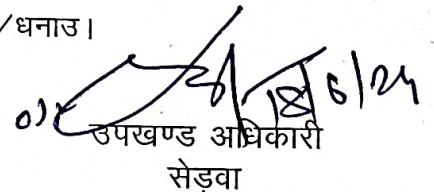 /धनाउ।
18/6/24
उपखण्ड अधिकारी
सेड़वा